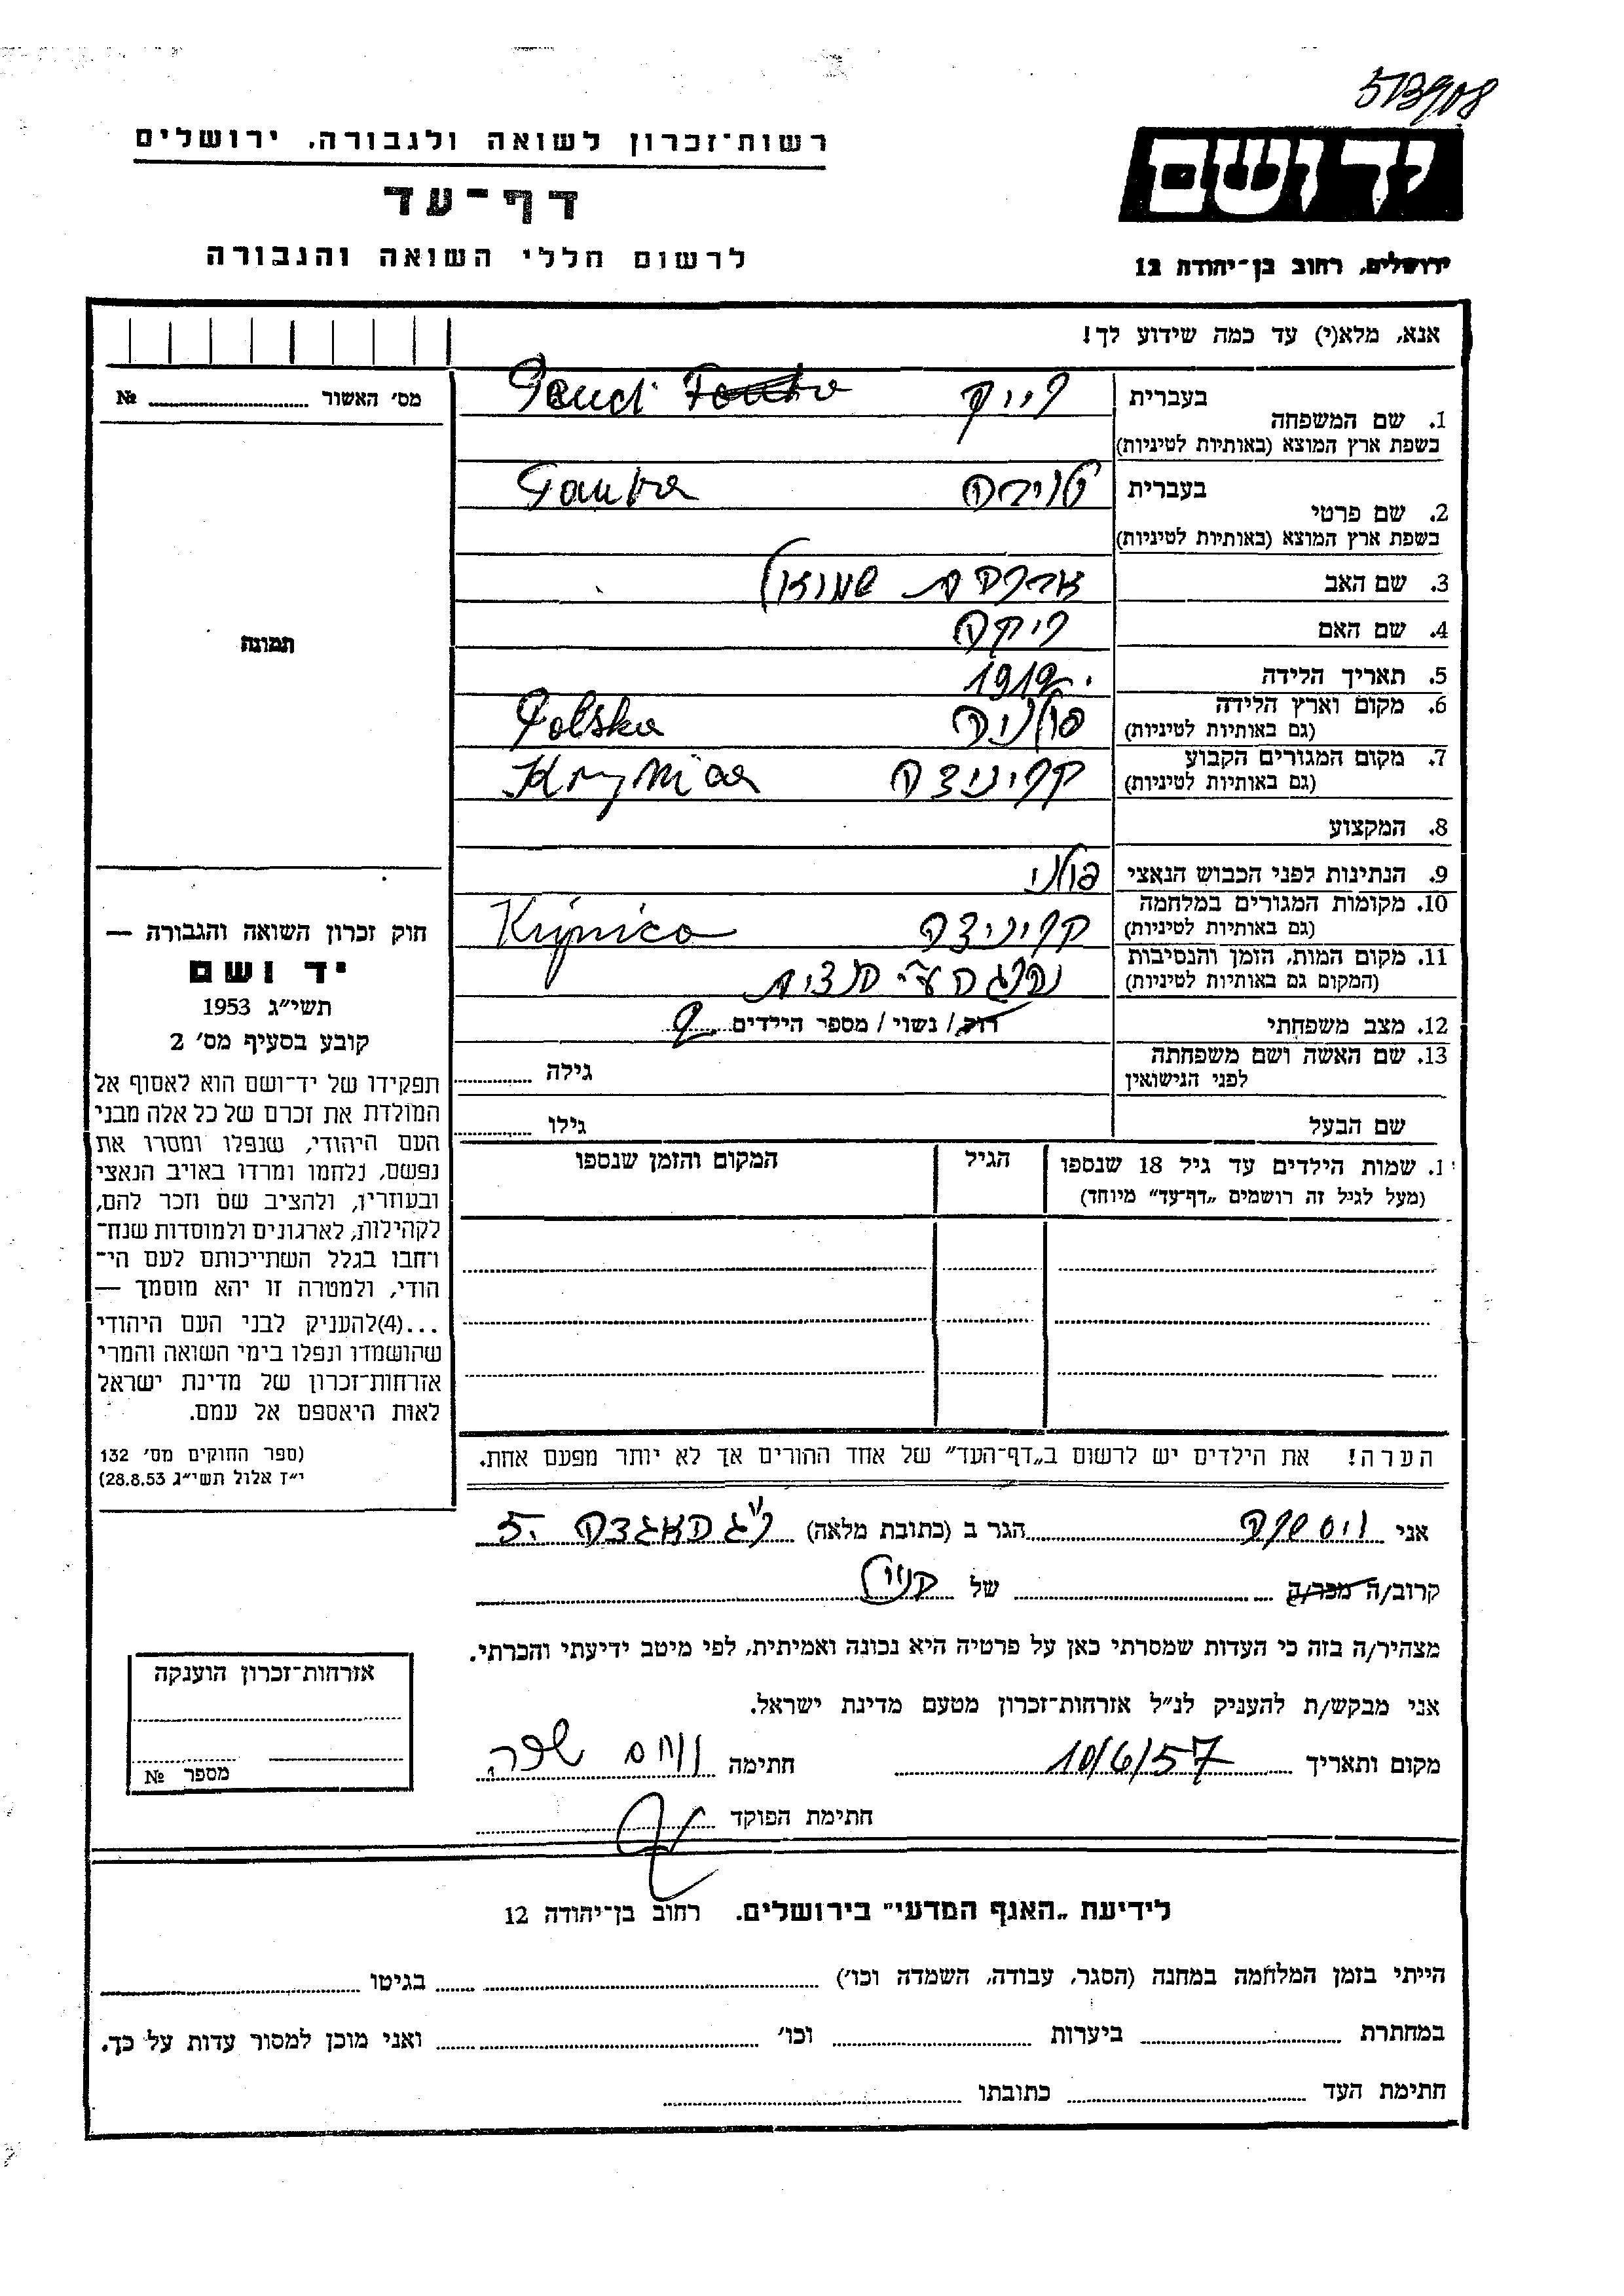 573908
רשות־זכרון לשואה ולגבורה, ירושלים
דף־עד
לרשום חללי השואה והגבורה
יד ושם
ירושלים, רחוב בן־יהודה 12
אנא, מלא(י) עד כמה שידוע לך!
מס׳ האשור №
תמונה
1. שם המשפחה
בעברית
בשפת ארץ המוצא (באותיות לטיניות)
2. שם פרטי
בעברית
טויבה Tauba
בשפת ארץ המוצא (באותיות לטיניות)
3. שם האב
אברהם שמואל
4. שם האם
רבקה
5. תאריך הלידה
1919
6. מקום וארץ הלידה
(גם באותיות לטיניות)
פולניה Polska
7. מקום המגורים הקבוע
(גם באותיות לטיניות)
קריניצה Krynica
8. המקצוע
9. הנתינות לפני הכבוש הנאצי
פולני
10. מקומות המגורים במלחמה
(גם באותיות לטיניות)
קריניצה Krynica
11. מקום המות, הזמן והנסיבות
(המקום גם באותיות לטיניות)
נהרגה ע״י
12. מצב משפחתי
רוק/ נשוי/ מספר הילדים
13. שם האשה ושם משפחתה
לפני הנישואין
גילה
שם הבעל
גילו
1. שמות הילדים עד גיל 18 שנספו
(מעל לגיל זה רושמים „דף־עד״ מיוחד)
הגיל
המקום והזמן שנספו
הערה! את הילדים יש לרשום ב„דף־העד״ של אחד ההורים אך לא יותר מפעם אחת.
חוק זכרון השואה והגבורה —
יד ושם
תשי״ג 1953
קובע בסעיף מס׳ 2
תפקידו של יד־ושם הוא לאסוף אל
המולדת את זכרם של כל אלה מבני
העם היהודי, שנפלו ומסרו את
נפשם, נלחמו ומרדו באויב הנאצי
ובעוזריו, ולהציב שם וזכר להם,
לקהילות, לארגונים ולמוסדות שנח־
רחבו בגלל השתייכותם לעם הי־
הודי, ולמטרה זו יהא מוסמך —
...(4)להעניק לבני העם היהודי
שהושמדו ונפלו בימי השואה והמרי
אזרחות־זכרון של מדינת ישראל
לאות היאספם אל עמם.
(ספר החוקים מס׳ 132
י״ז אלול תשי״ג 28.8.53)
אני
הגר ב (כתובת מלאה)
קרוב/ה מכר/ה של
מצהיר/ה בזה כי העדות שמסרתי כאן על פרטיה היא נכונה ואמיתית, לפי מיטב ידיעתי והכרתי.
אני מבקש/ת להעניק לנ״ל אזרחות־זכרון מטעם מדינת ישראל.
מקום ותאריך 10/6/57 חתימה
חתימת הפוקד
אזרחות־זכרון הוענקה
מספר №
לידיעת „האגף המדעי״ בירושלים. רחוב בן־יהודה 12
הייתי בזמן המלחמה במחנה (הסגר, עבודה, השמדה וכו׳) בגיטו
במחתרת ביערות וכו׳ ואני מוכן למסור עדות על כך.
חתימת העד כתובתו